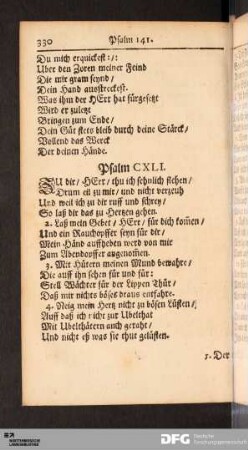 330
Psalm 141.
Du mich erquickest:/:
Uber den Zoren meiner Feind
Die mir gram seynd/
Dein Hand ausstreckest.
Was ihm der HErr hat fürgesetzt
Wird er zuletzt
Bringen zum Ende/
Dein Güt stets bleib durch deine Stärck/
Vollend das Werck
Der deinen Hände.
Psalm CXLI.
ZU dir/ HErr/ thu ich sehnlich flehen/
Drum eil zu mir/ und nicht verzeuh
Und weil ich zu dir ruff und schrey/
So laß dir das zu Hertzen gehen.
2. Laß mein Gebet/ HErr/ für dich kom̃en/
Und ein Rauchopffer seyn für dir/
Mein Hand auffheben werd von mir
Zum Abendopffer angenom̃en.
3. Mit Hütern meinen Mund bewahre/
Die auff ihn sehen für und für:
Stell Wächter für der Lippen Thür/
Daß mir nichts böses draus entfahre.
4. Neig mein Hertz nicht zu bösen Lüsten/
Auff daß ich nicht zur Ubelthat
Mit Ubelthätern auch gerath/
Und nicht eß was sie thut gelüsten.
5. Der
DFG
Deutsche
Forschungsgemeinschaft